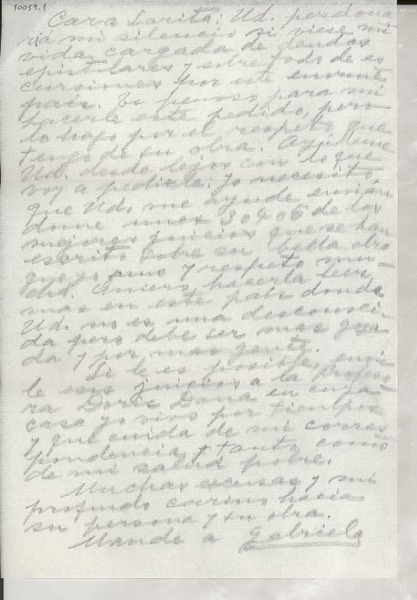 10059.1
Cara Sarita: Ud. perdona
rá mi silencio si viese mi
vida cargada de deudas
epistolares y sobre todo de ex
cursiones por este enorme
país. Es penoso para mí
hacerle este pedido, pero
lo hago por el respeto que
tengo de su obra. Ayúdeme
Ud. desde lejos con lo que
voy a pedirle: yo necesito
que Ud. me ayude envian
dome unos 3 o 4 o 5 de los
mejores juicios que se han
escrito sobre su bella obra
que yo amo y respeto mu-
cho. Quiero hacerla leer
mas en este país donde
Ud. no es una desconoci
da pero debe ser mas goza
da y por mas gente.
Si le es posible, envíe
le esos juicios a la profeso
ra Doris Dana en cuya
casa yo vivo por tiempos
y que cuida de mi corres
pondencia y tanto como
de mi salud pobre.
Muchas excusas y mi
profundo cariño hacia
su persona y su obra.
Mande a Gabriela